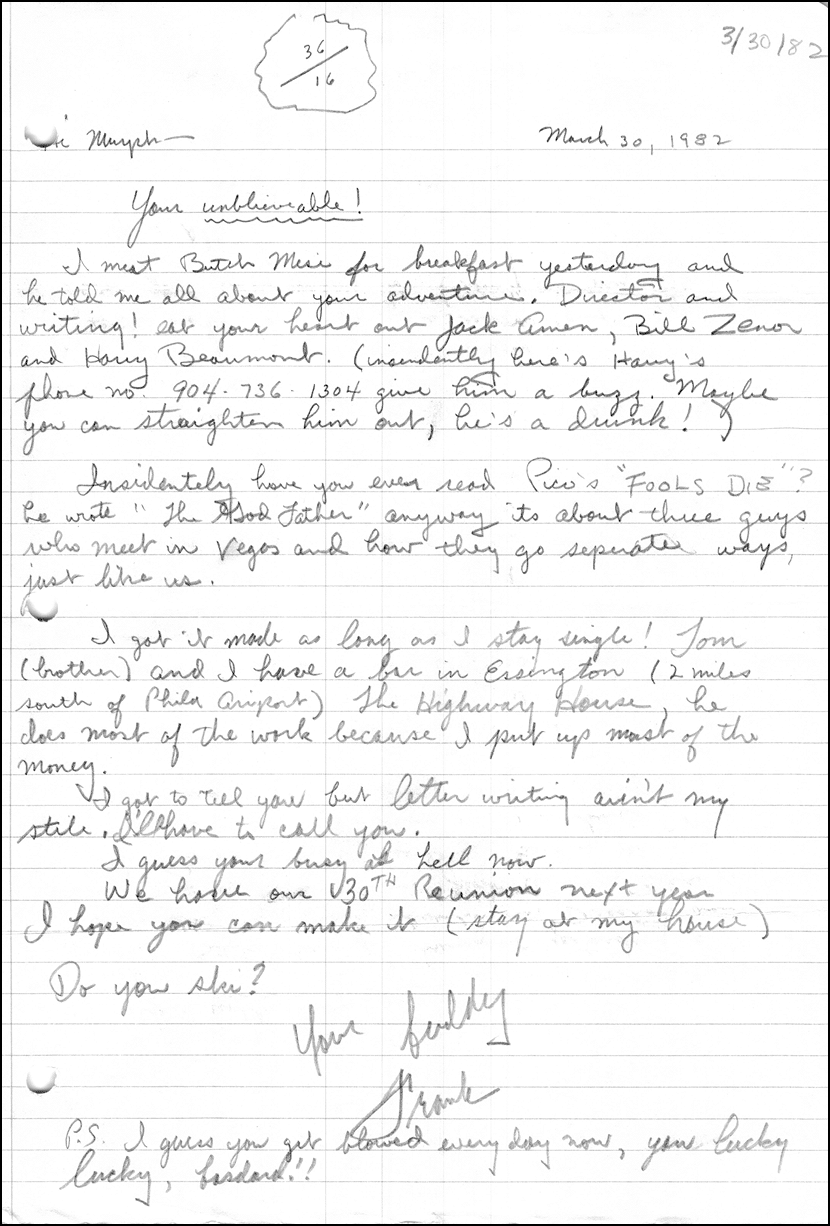 3/30/82
36
16
Hi Murph—
March 30, 1982
Your unblieveable!
I meat Butch Misi for breakfast yesterday and
he told me all about your adventure. Director and
writing! eat your heart out Jack Amen, Bill Zenor
and Harry Beaumont. (insendantly here's Harry's
phone no. 904-736-1304 give him a buzz. Maybe
you can straighten him out, he's a drunk!)
Insidentely have you ever read Pico's "FOOLS DIE"?
he wrote "The God Father" anyway its about three guys
who meet in Vegas and how they go seperate ways,
just like us.
I got it made as long as I stay single! Tom
(brother) and I have a bar in Essington (2 miles
south of Phila Ariport) The Highway House, he
does most of the work because I put up most of the
money.
I got to tell you but letter writing ain't my
stile. I'll have to call you.
I guess your busy as hell now.
We have our 30TH Reunion next year
I hope you can make it (stay at my house)
Do you ski?
Your buddy
Frank
P.S. I guess you get blowed every day now, you lucky
lucky, basdard!!